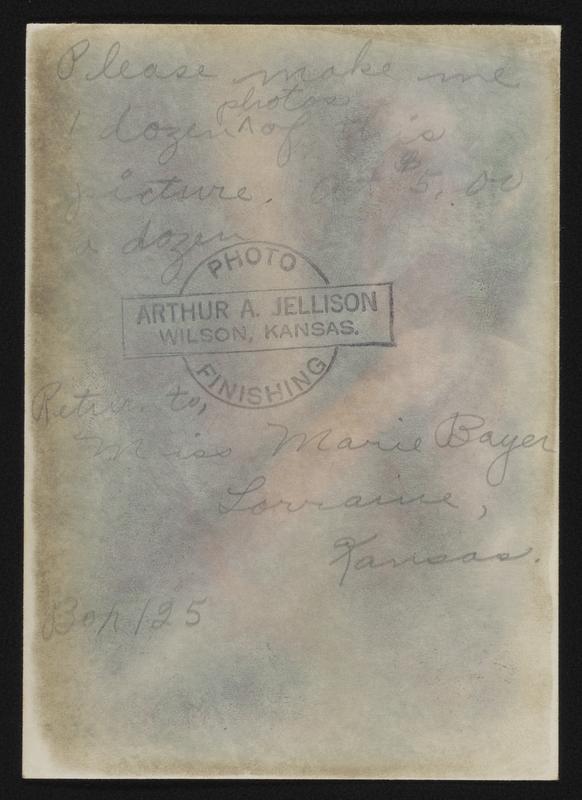 Please make me
1 dozen photos of this
picture. at $5.00
a dozen
PHOTO
ARTHUR A. JELLISON
WILSON, KANSAS.
FINISHING
Return to,
Miss Marie Bayer
Lorraine,
Kansas.
Box 125